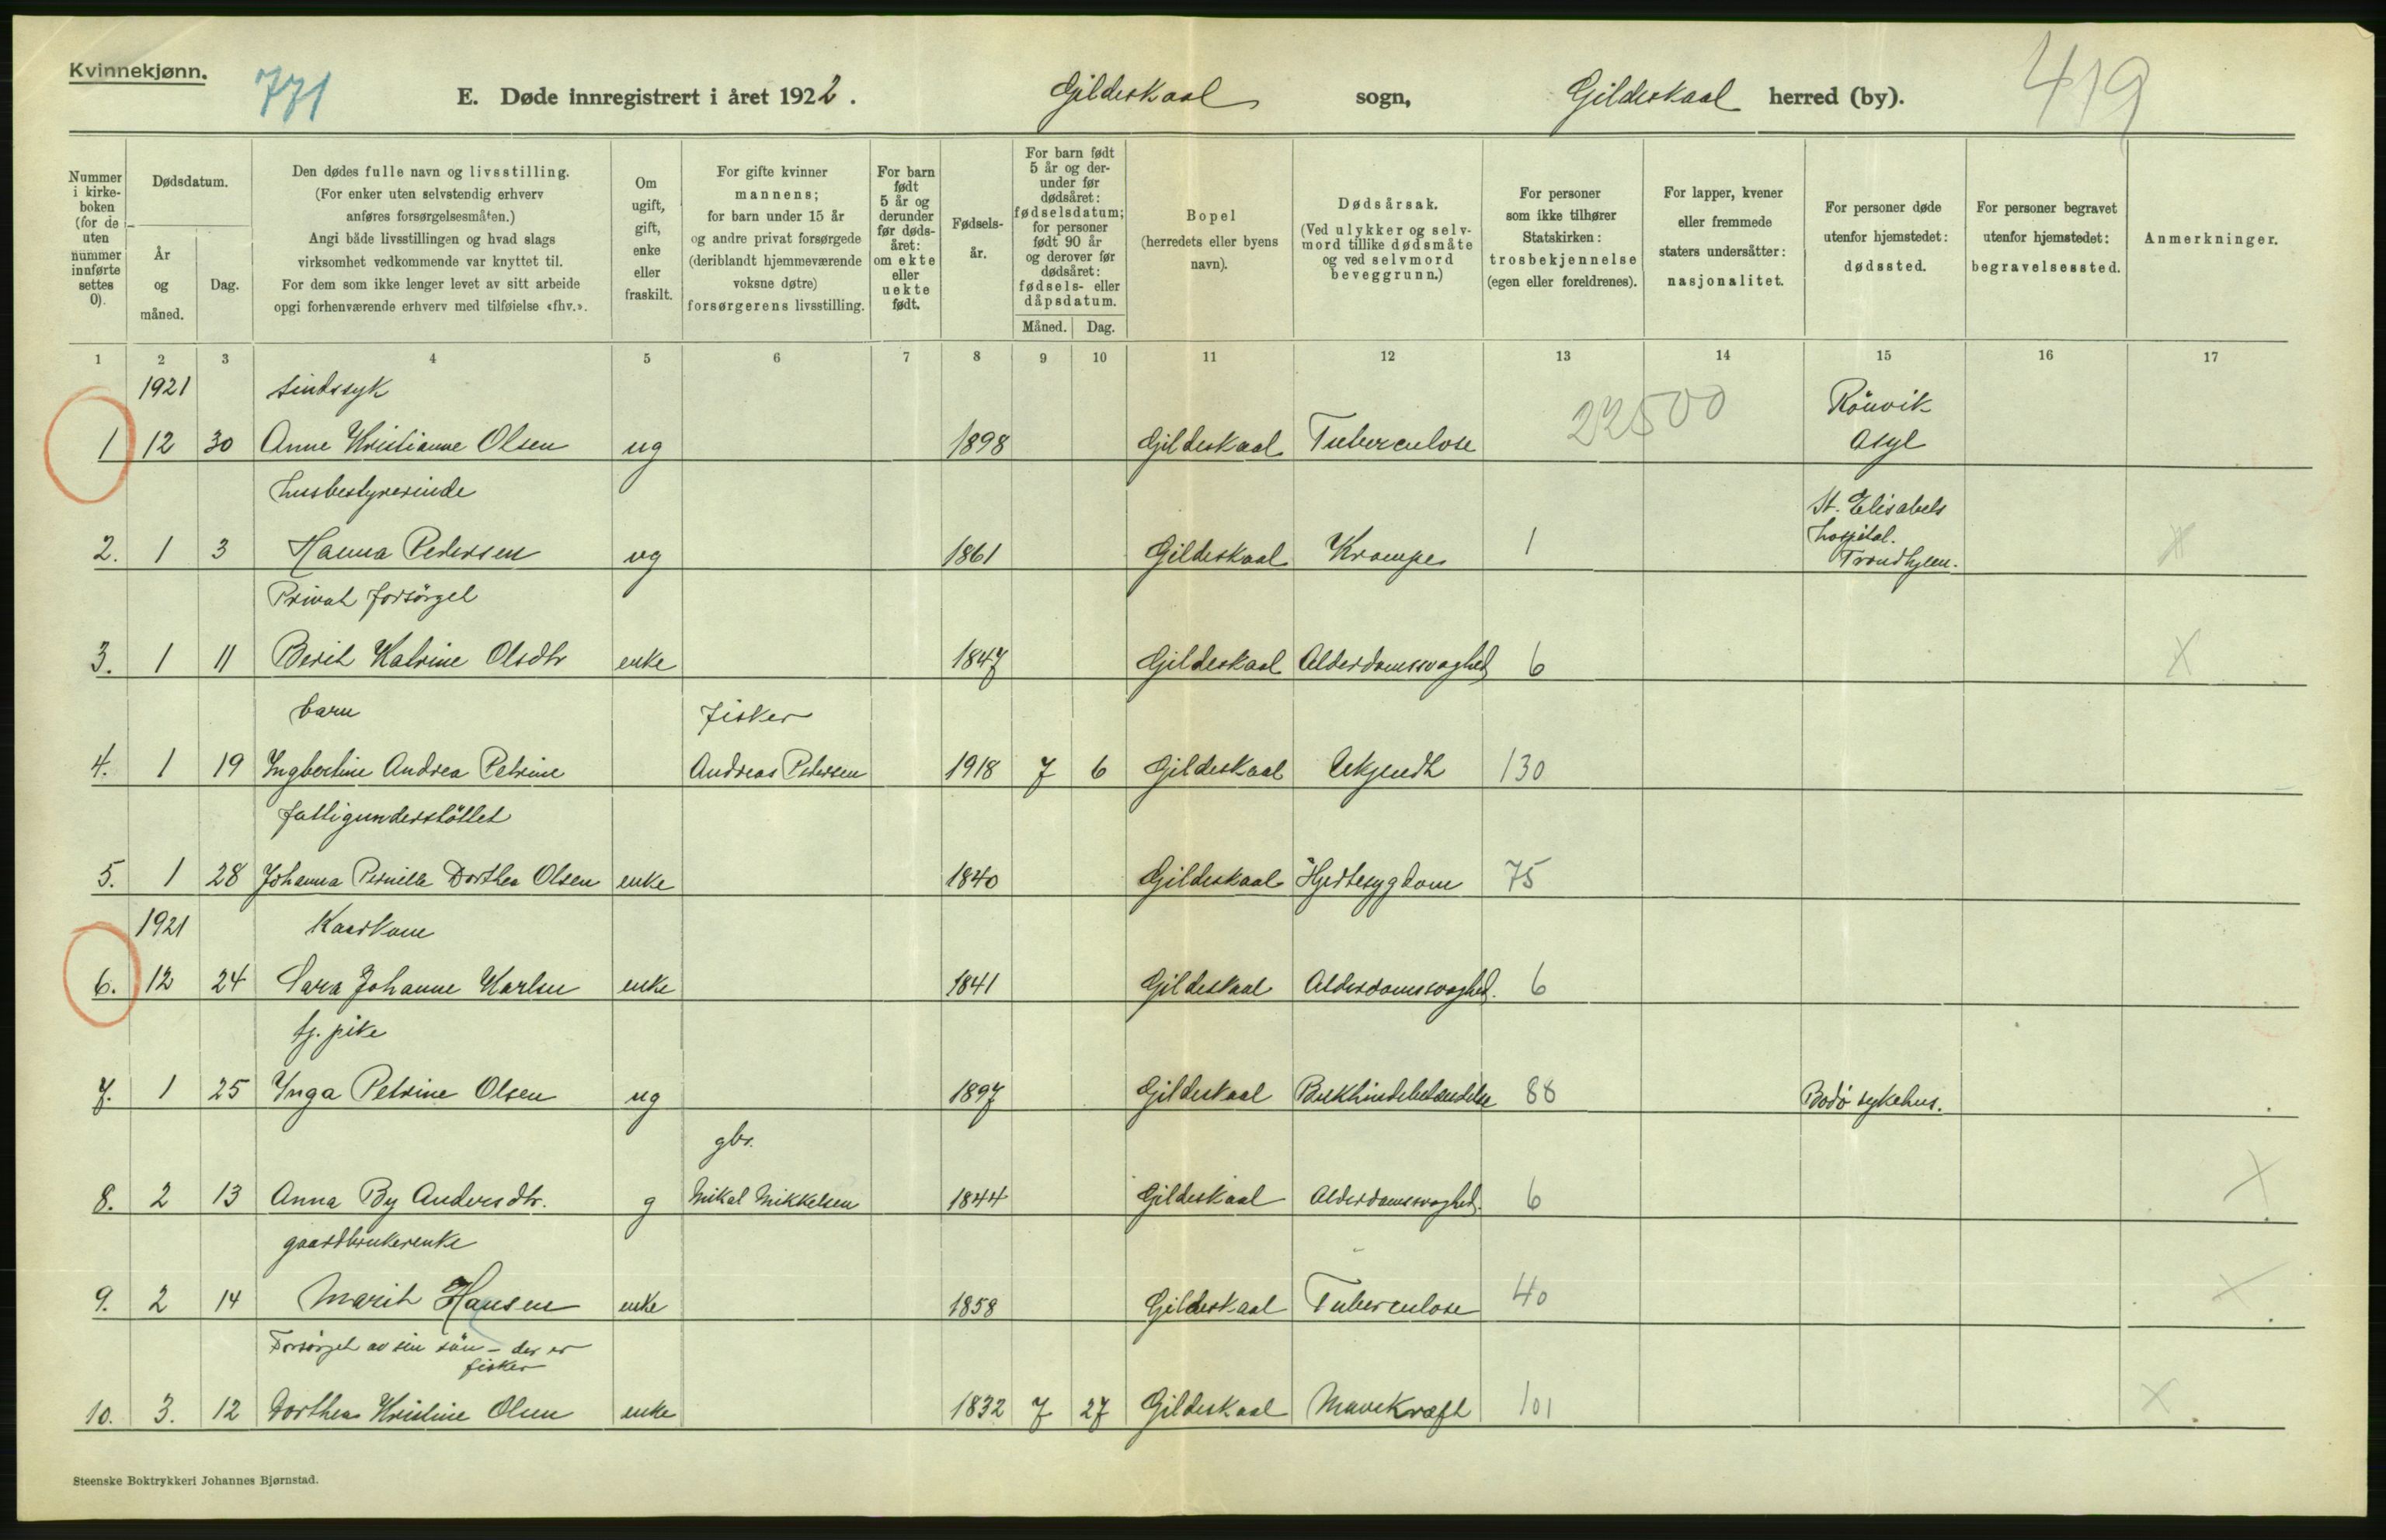 Kvinnekjønn.
771
E. Døde innregistrert i året 1922.
Gildeskaal sogn,
Gildeskaal herred (by).
419
Nummer i kirkeboken (for de uten nummer innførte settes 0).
Dødsdatum.
År og måned.
Dag.
Den dødes fulle navn og livsstilling.
(For enker uten selvstendig erhverv
anføres forsørgelsesmåten.)
Angi både livsstillingen og hvad slags
virksomhet vedkommende var knyttet til.
For dem som ikke lenger levet av sitt arbeide
opgi forhenværende erhverv med tilføielse «fhv.».
Om ugift, gift, enke eller fraskilt.
For gifte kvinner
mannens;
for barn under 15 år
og andre privat forsørgede
(deriblandt hjemmeværende
voksne døtre)
forsørgerens livsstilling.
For barn født 5 år og derunder før dødsåret: om ekte eller uekte født.
Fødselsår.
For barn født 5 år og derunder før dødsåret: fødselsdatum; for personer født 90 år og derover før dødsåret: fødsels- eller dåpsdatum.
Måned. Dag.
Bopel
(herredets eller byens
navn).
Dødsårsak.
(Ved ulykker og selvmord tillike dødsmåte
og ved selvmord
beveggrunn.)
For personer
som ikke tilhører
Statskirken:
trosbekjennelse
(egen eller foreldrenes).
For lapper, kvener
eller fremmede
staters undersåtter:
nasjonalitet.
For personer døde
utenfor hjemstedet:
dødssted.
For personer begravet
utenfor hjemstedet:
begravelsessted.
Anmerkninger.
1 2 3 4 5 6 7 8 9 10 11 12 13 14 15 16 17
1921 sindssyk 22500 Rönvik
1 12 30 Anne Kristianne Olsen ug 1898 Gildeskaal Tuberculose Asyl
husbestyrerinde St. Elisabets
hospital.
2. 1 3 Hanna Pedersen ug 1861 Gildeskaal Krampe 1 Trondhjem. X
Privat forsörget
3. 1 11 Berit Katrine Olsdtr enke 1847 Gildeskaal Alderdomssvaghed 6 X
barn fisker
4. 1 19 Ingbertine Andrea Petrine Andreas Pedersen 1918 7 6 Gildeskaal Ukjendt 130
fattigunderstöttet
5. 1 28 Johanna Pernilla Dorthea Olsen enke 1840 Gildeskaal Hjertesygdom 75
1921 Kaarkone
6. 12 24 Sara Johanne Karlsen enke 1841 Gildeskaal Alderdomssvaghed. 6
tj. pike
7. 1 25 Inga Petrine Olsen ug 1897 Gildeskaal Bukhindebetændelse 88 Bodö sykehus.
gbr.
8. 2 13 Anna By Andersdtr. g Mikal Mikkelsen 1844 Gildeskaal Alderdomssvaghed. 6 X
gaardbrukerenke
9. 2 14 Marit Hansen enke 1858 Gildeskaal Tuberculose 40 X
Forsörget av sin sön – der er
fisker
10. 3. 12 Dorthea Kristine Olsen enke 1832 7 27 Gildeskaal Mavekræft 101 X
Steenske Boktrykkeri Johannes Bjørnstad.